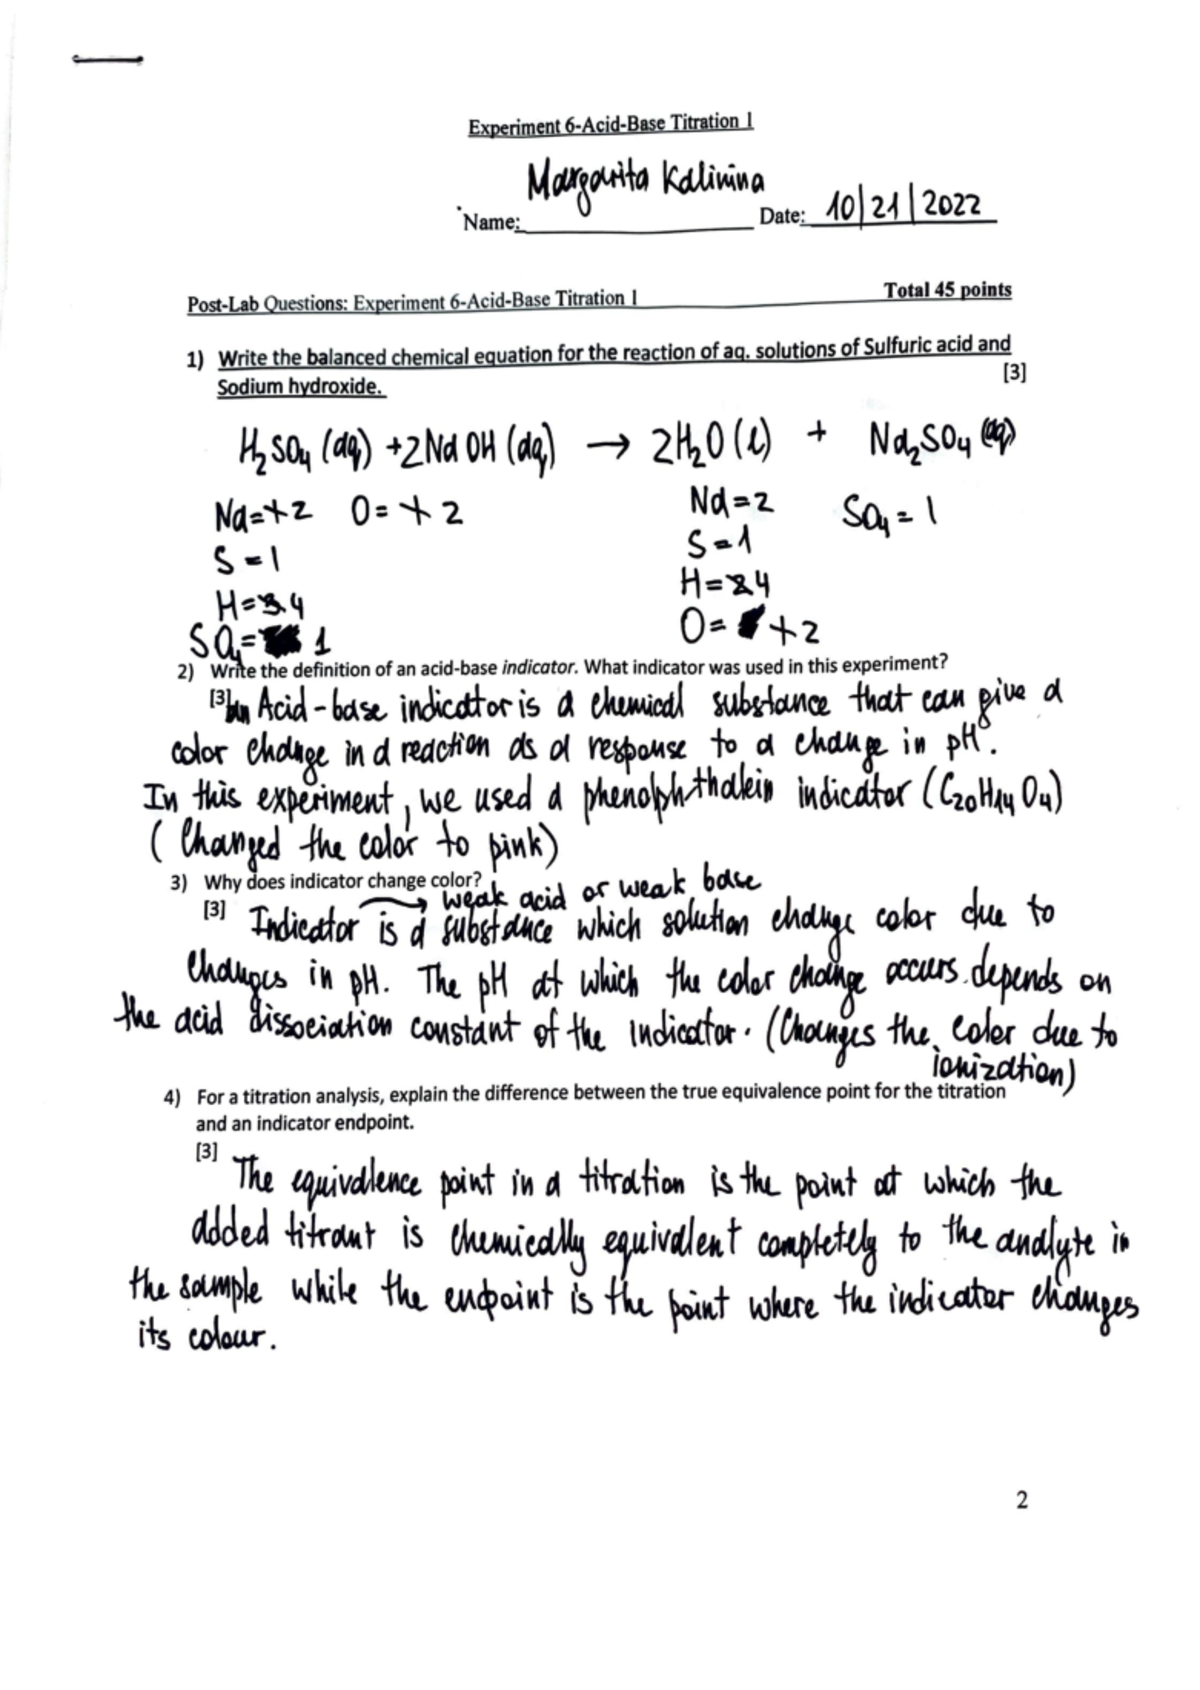 Experiment 6-Acid-Base Titration 1
Margarita Kalinina
Name: Date: 10/21/2022
Post-Lab Questions: Experiment 6-Acid-Base Titration 1 Total 45 points
1) Write the balanced chemical equation for the reaction of aq. solutions of Sulfuric acid and
Sodium hydroxide. [3]
H₂SO₄ (aq) +2NaOH (aq) → 2H₂O (l) + Na₂SO₄ (aq)
Na=+2 O=+2 Na=2 SO₄=1
S=1 S=1
H=4 H=4
SO₄= 1 O= +2
2) Write the definition of an acid-base indicator. What indicator was used in this experiment?
[3] An Acid-base indicator is a chemical substance that can give a
color change in a reaction as a response to a change in pH.
In this experiment, we used a phenolphthalein indicator (C₂₀H₁₄O₄)
(Changed the color to pink)
3) Why does indicator change color?
→ weak acid or weak base
[3] Indicator is a substance which solution change color due to
changes in pH. The pH at which the color change occurs depends on
the acid dissociation constant of the indicator. (Changes the color due to
ionization)
4) For a titration analysis, explain the difference between the true equivalence point for the titration
and an indicator endpoint.
[3]
The equivalence point in a titration is the point at which the
added titrant is chemically equivalent completely to the analyte in
the sample while the endpoint is the point where the indicator changes
its colour.
2